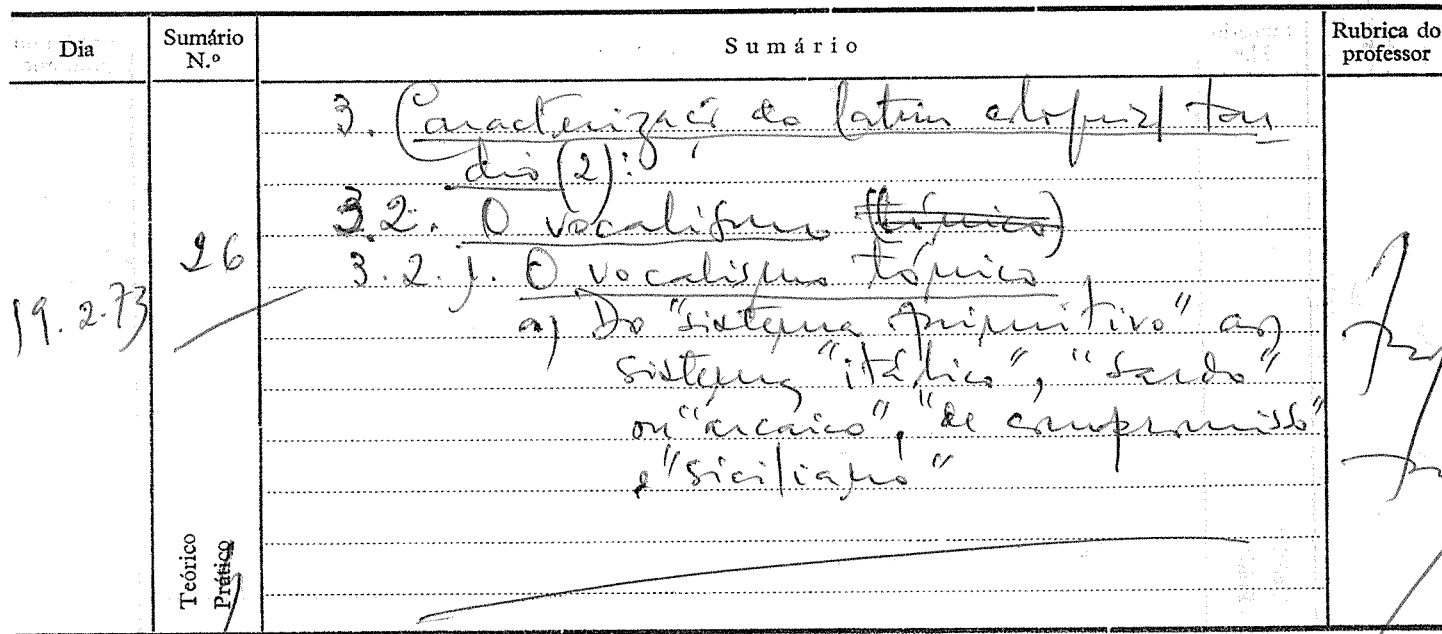 Dia
Sumário N.º
Sumário
Rubrica do professor
19.2.73
26
3. Caracterização do latim tar
dio (2):
3.2. O vocalismo (tónico)
3.2.1. O vocalismo tónico
a) Do "sistema primitivo" aos
sistemas "itálico", "sardo"
ou "arcaico", "de compromisso"
e "siciliano"
Teórico
Prático